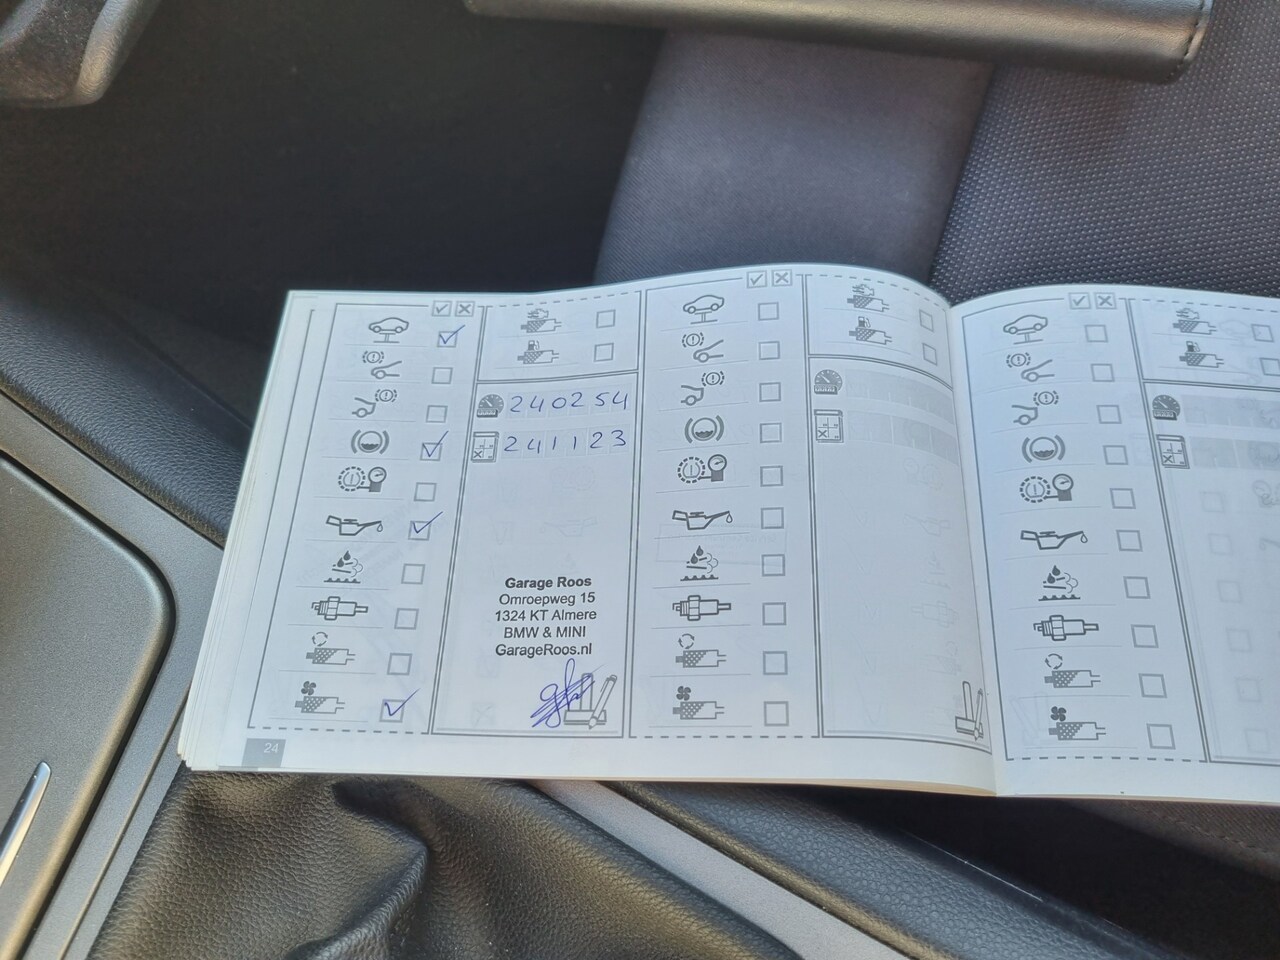 240254
241123
Garage Roos
Omroepweg 15
1324 KT Almere
BMW & MINI
GarageRoos.nl
24